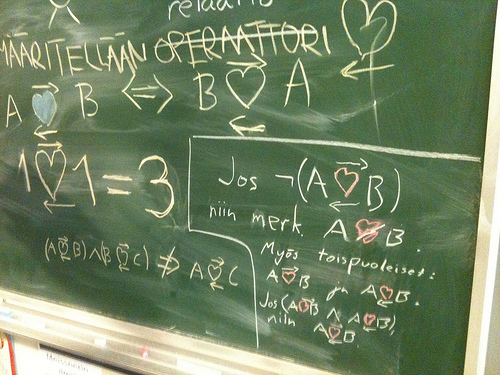 relaatio
MÄÄRITELLÄÄN OPERAATTORI ♡
A ♡ B ⇔ B ♡ A ←
1 ♡ 1 = 3
(A ♡ B) ∧ (B ♡ C) ⇏ A ♡ C
Jos ¬(A ♡ B)
niin merk. A ♡ B.
Myös toispuoleiset:
A ♡ B ja A ♡ B.
Jos (A ♡ B ∧ A ♡ B),
niin A ♡ B.